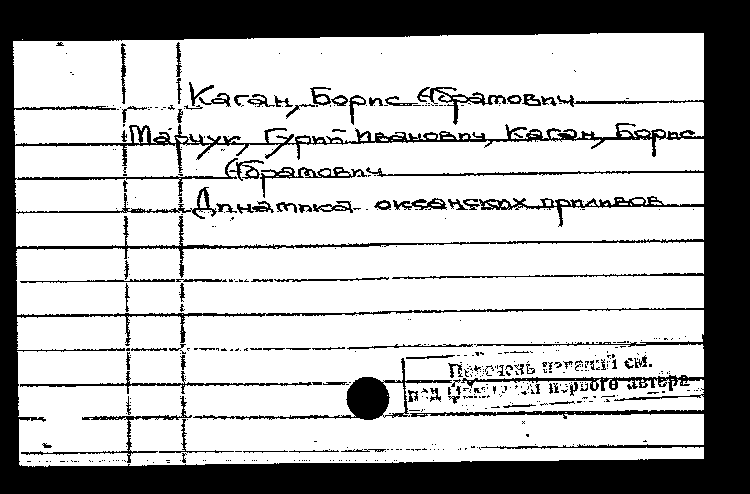 Каган, Борис Абрамович
Марчук, Гурий Иванович, Каган, Борис
Абрамович
Динамика океанских приливов
Перечень изданий см.
под фамилией первого автора